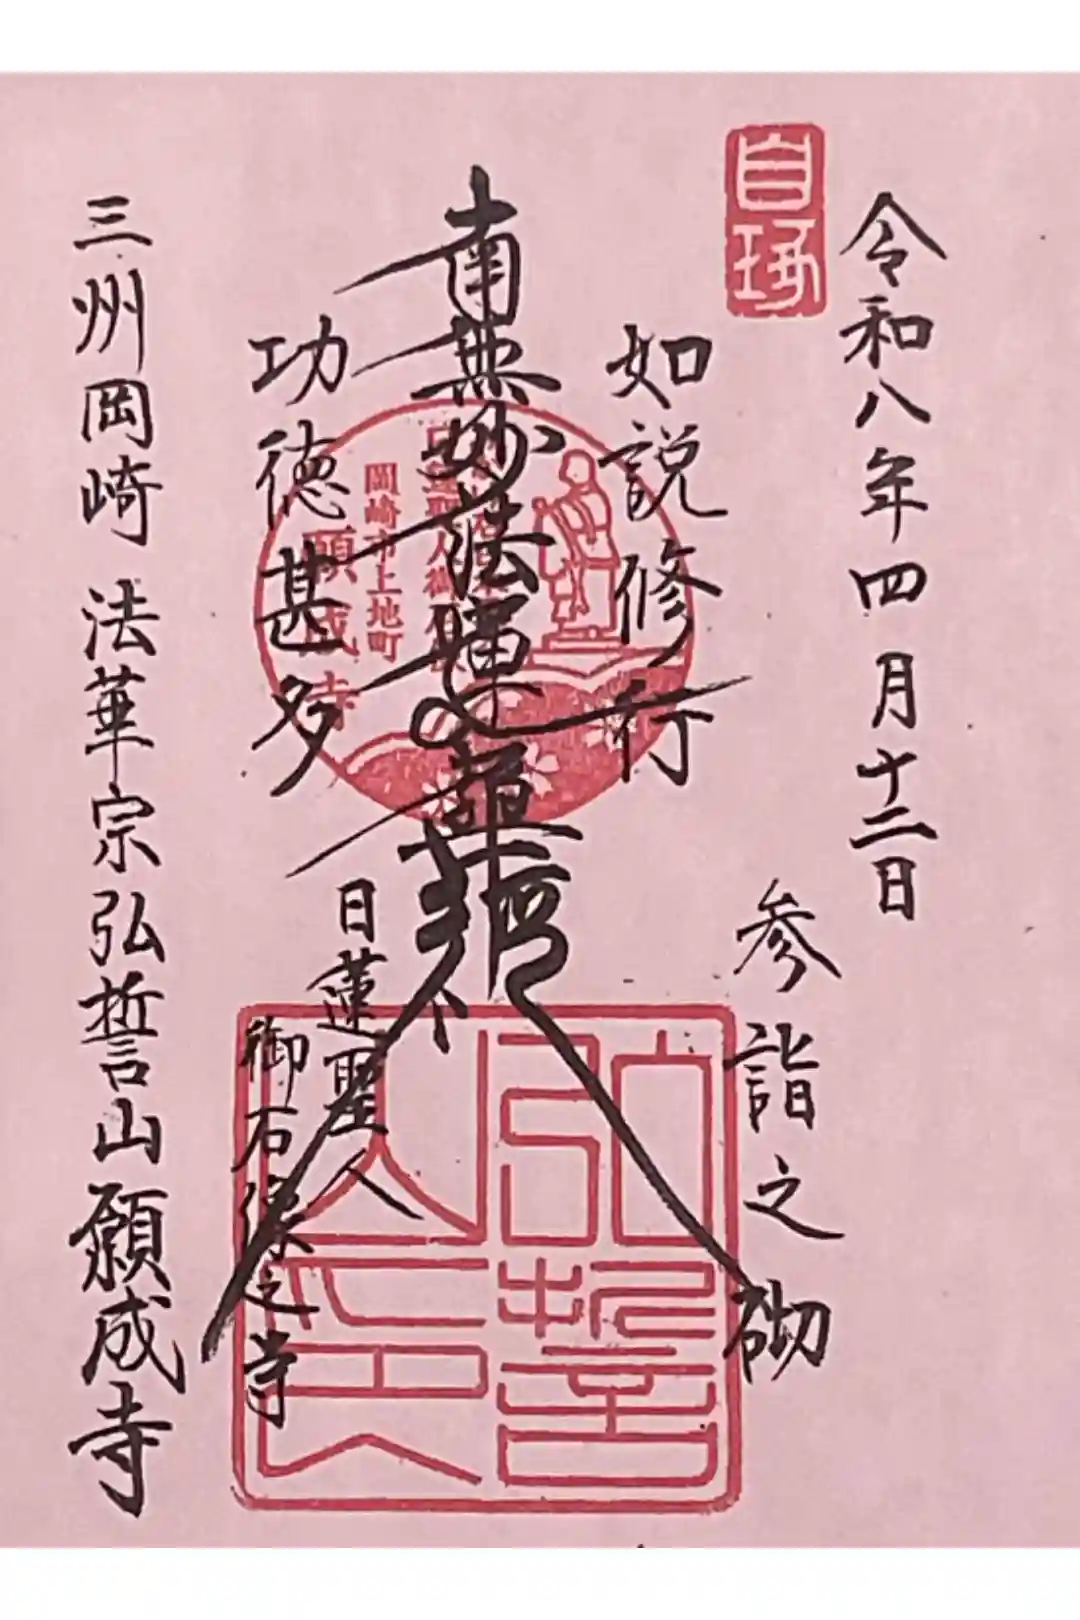 令和八年四月十二日
参詣之砌
如説修行
南無妙法蓮華経
功徳甚多
日蓮聖人
御石像之寺
三州岡崎 法華宗弘誓山願成寺
岡崎市上地町
願成寺